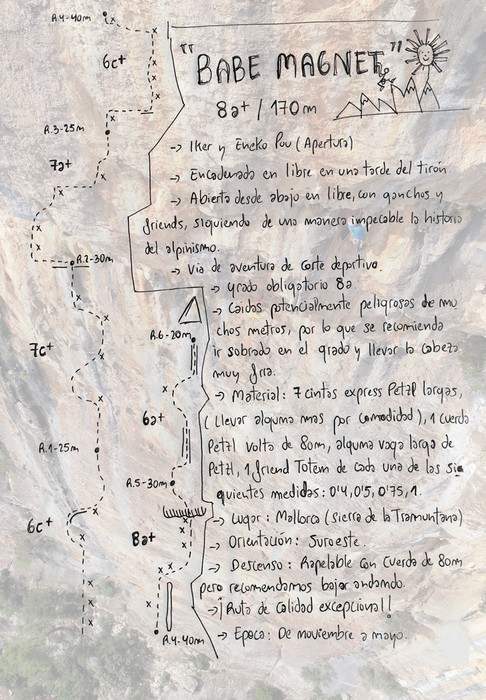 R.4-40m
6c+
R.3-25m
7a+
R.2-30m
7c+
R.1-25m
6c+
R.6-20m
6a+
R.5-30m
8a+
R.4-40m
"BABE MAGNET"
8a+ / 170m
-> Iker y Eneko Pou (Apertura)
-> Encadenado en libre en una tarde del tirón
-> Abierta desde abajo en libre, con ganchos y
friends, siguiendo de una manera impecable la historia
del alpinismo.
-> Vía de aventura de corte deportivo.
-> grado obligatorio 8a
-> Caídas potencialmente peligrosas de mu
chos metros, por lo que se recomienda
ir sobrado en el grado y llevar la cabeza
muy fría.
-> Material: 7 cintas express Petzl largas,
(llevar alguna mas por comodidad), 1 cuerda
Petzl Volta de 80m, alguna vaga larga de
Petzl, 1 friend Totem de cada una de las si
guientes medidas: 0'4, 0'5, 0'75, 1.
-> Lugar: Mallorca (Sierra de la Tramuntana)
-> Orientación: Suroeste.
-> Descenso: Rapelable con cuerda de 80m
pero recomendamos bajar andando.
-> ¡Ruta de calidad excepcional!
-> Epoca: De noviembre a mayo.